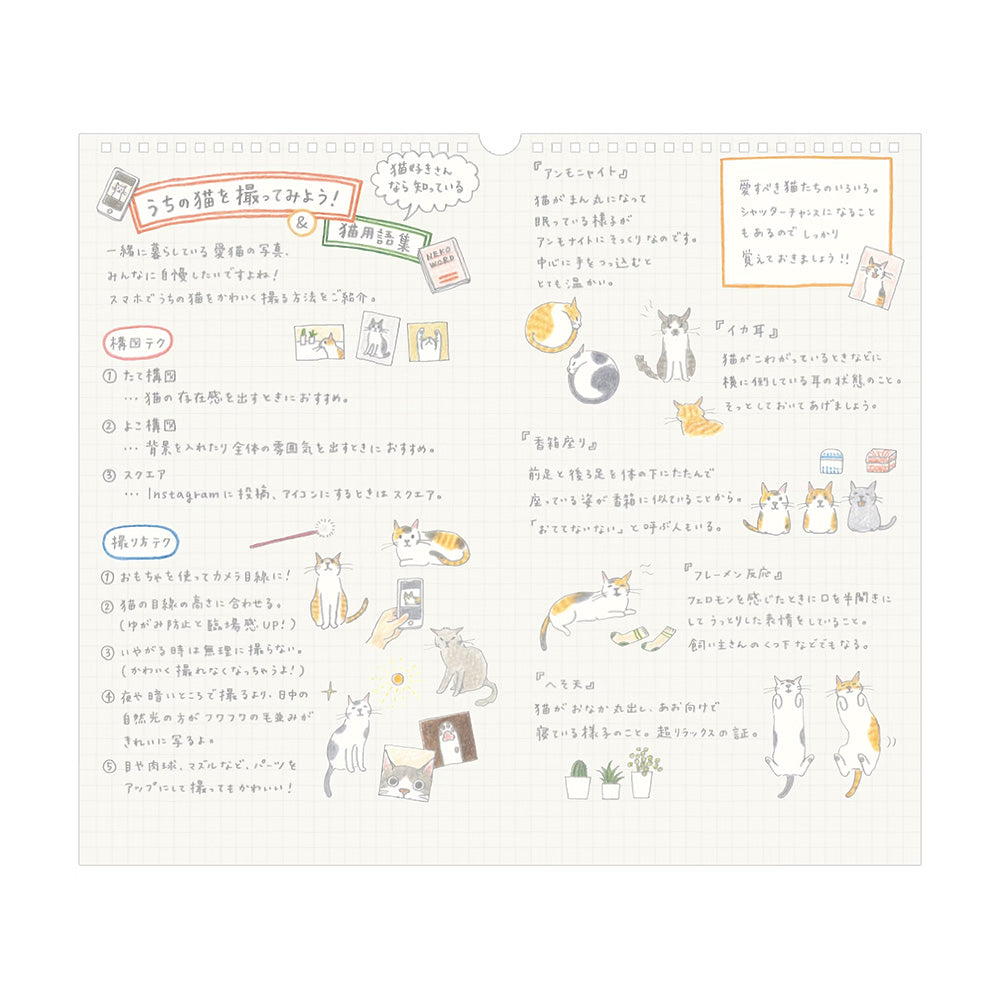 うちの猫を撮ってみよう!
&
猫用語集
猫好きさん
なら知っている
NEKO
WORD
一緒に暮らしている愛猫の写真、
みんなに自慢したいですよね!
スマホでうちの猫をかわいく撮る方法をご紹介。
構図テク
① たて構図
… 猫の存在感を出すときにおすすめ。
② よこ構図
… 背景を入れたり全体の雰囲気を出すときにおすすめ。
③ スクエア
… Instagramに投稿、アイコンにするときはスクエア。
撮り方テク
① おもちゃを使ってカメラ目線に!
② 猫の目線の高さに合わせる。
(ゆがみ防止と臨場感UP!)
③ いやがる時は無理に撮らない。
(かわいく撮れなくなっちゃうよ!)
④ 夜や暗いところで撮るより、日中の
自然光の方がフワフワの毛並みが
きれいに写るよ。
⑤ 目や肉球、マズルなど、パーツを
アップにして撮ってもかわいい!
『アンモニャイト』
猫がまん丸になって
眠っている様子が
アンモナイトにそっくりなのです。
中心に手をつっ込むと
とても温かい。
愛すべき猫たちのいろいろ。
シャッターチャンスになること
もあるので しっかり
覚えておきましょう!!
『イカ耳』
猫がこわがっているときなどに
横に倒している耳の状態のこと。
そっとしておいてあげましょう。
『香箱座り』
前足と後ろ足を体の下にたたんで
座っている姿が香箱に似ていることから。
「おててないない」と呼ぶ人もいる。
『フレーメン反応』
フェロモンを感じたときに口を半開きに
してうっとりした表情をしていること。
飼い主さんのくつ下などでもなる。
『へそ天』
猫がおなか丸出し、あお向けで
寝ている様子のこと。超リラックスの証。